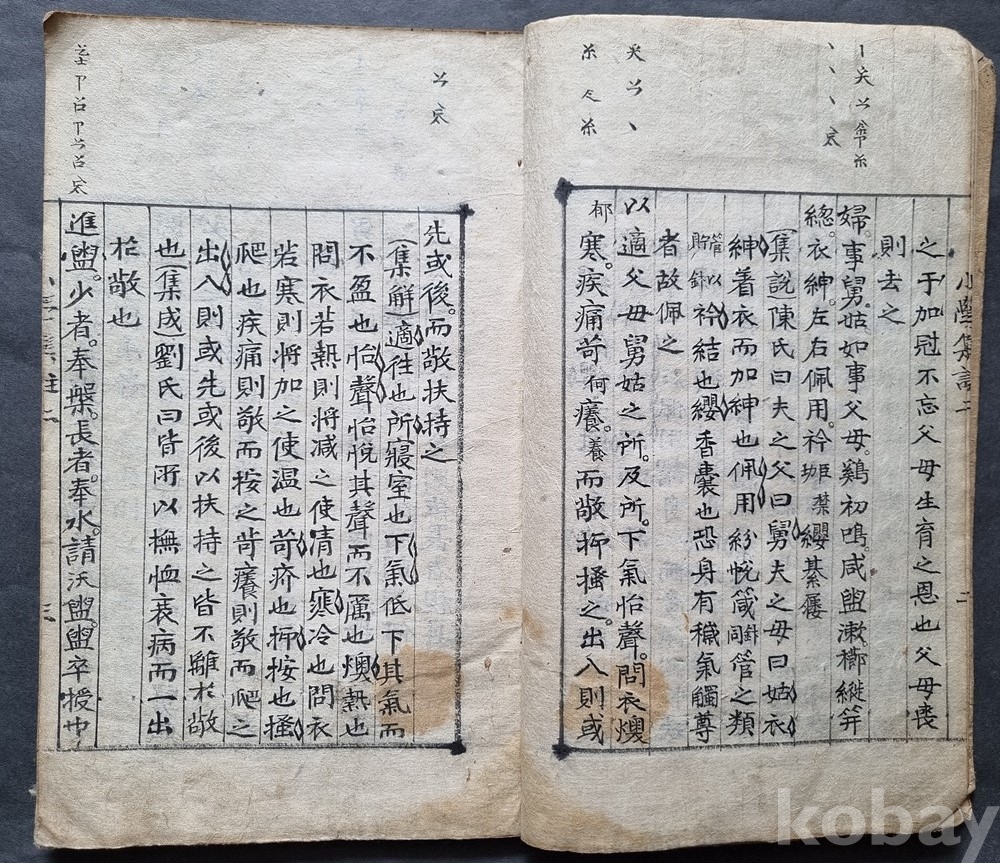 之于加冠不忘父母生育之恩也父母喪
則去之
婦事舅姑如事父母雞初鳴咸盥漱櫛縰笄
緫衣紳左右佩用衿纓綦屨
集說陳氏曰夫之父曰舅夫之母曰姑衣
紳着衣而加紳也佩用紛帨箴管之類
衿結也纓香囊也恐身有穢氣觸尊
者故佩之
以適父母舅姑之所及所下氣怡聲問衣燠
郁寒疾痛苛何癢養而敬抑搔之出入則或
先或後而敬扶持之
集解適往也所寢室也下氣低下其氣而
不盈也怡聲怡悅其聲而不厲也燠熱也
問衣若熱則將减之使清也寒冷也問衣
若寒則將加之使温也苛疥也抑按也搔
爬也疾痛則敬而按之苛癢則敬而爬之
出入則或先或後以扶持之皆不離於敬
也集成劉氏曰皆所以撫恤衰病而一出
於敬也
進盥少者奉槃長者奉水請沃盥盥卒授巾
小學集註二
二
kobay